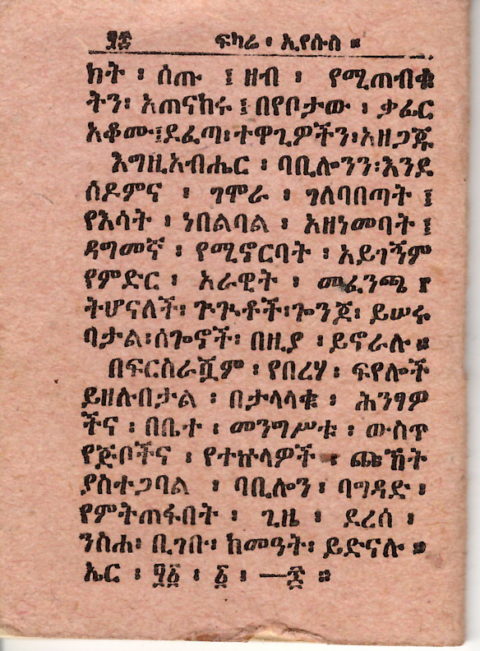 ፶፰ ፍካሬ ፡ ኢየሱስ ።
ክት ፡ ሰጡ ፤ ዘብ ፡ የሚጠብቁ
ትን፡ አጠናከሩ ፤ በየቦታው ፡ ቃፊር
አቆሙ፤ደፈጣ፡ተዋጊዎችን፡አዘጋጁ
እግዚአብሔር ፡ ባቢሎንን፡እንደ
ሰዶምና ፡ ገሞራ ፡ ገለባበጣት ፤
የእሳት ፡ ነበልባል ፡ አዘነመባት ፤
ዳግመኛ ፡ የሚኖርባት ፡ አይገኝም
የምድር ፡ አራዊት ፡ መፈንጫ ፤
ትሆናለች፡ ጉጉቶች፡ጐንጆ፡ ይሠሩ
ባታል፡ሰጐኖች፡ በዚያ ፡ ይኖራሉ ።
በፍርስራሿም ፡ የበረሃ ፡ ፍየሎች
ይዘሉበታል ፡ በታላላቁ ፡ ሕንፃዎ
ችና ፡ በቤተ ፡ መንግሥቱ ፡ ውስጥ
የጅቦችና ፡ የተኵላዎች ፡ ጩኸት
ያስተጋባል ፡ ባቢሎን ፡ ባግዳድ ፡
የምትጠፋበት ፡ ጊዜ ፡ ደረሰ ፡
ንስሐ፡ ቢገቡ፡ ከመዓት፡ ይድናሉ ።
ኤር ፡ ፶፩ ፡ ፩ ፡ —፰ ።